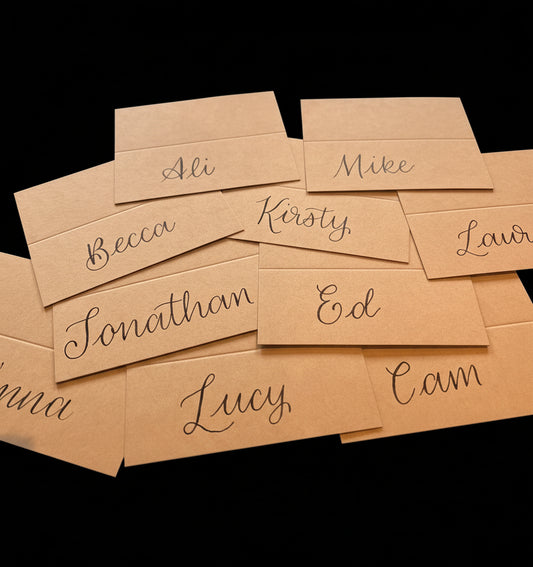 Ali
Mike
Becca
Kirsty
Laur
Jonathan
Ed
nna
Lucy
Cam